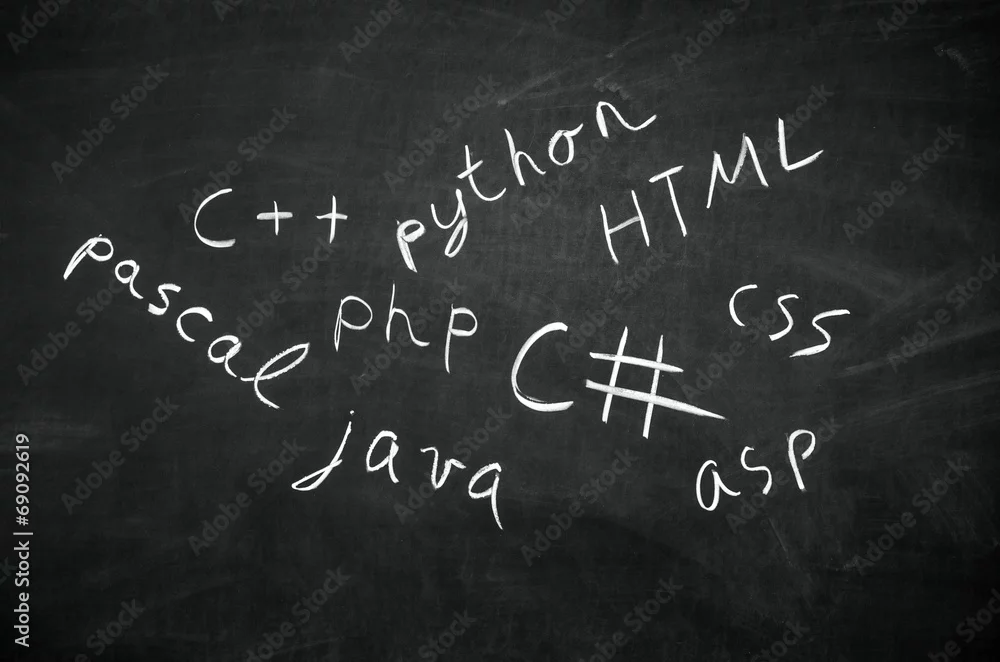 python
HTML
C++
pascal
php
css
C#
java
asp
Adobe Stock | #69092619
Adobe Stock